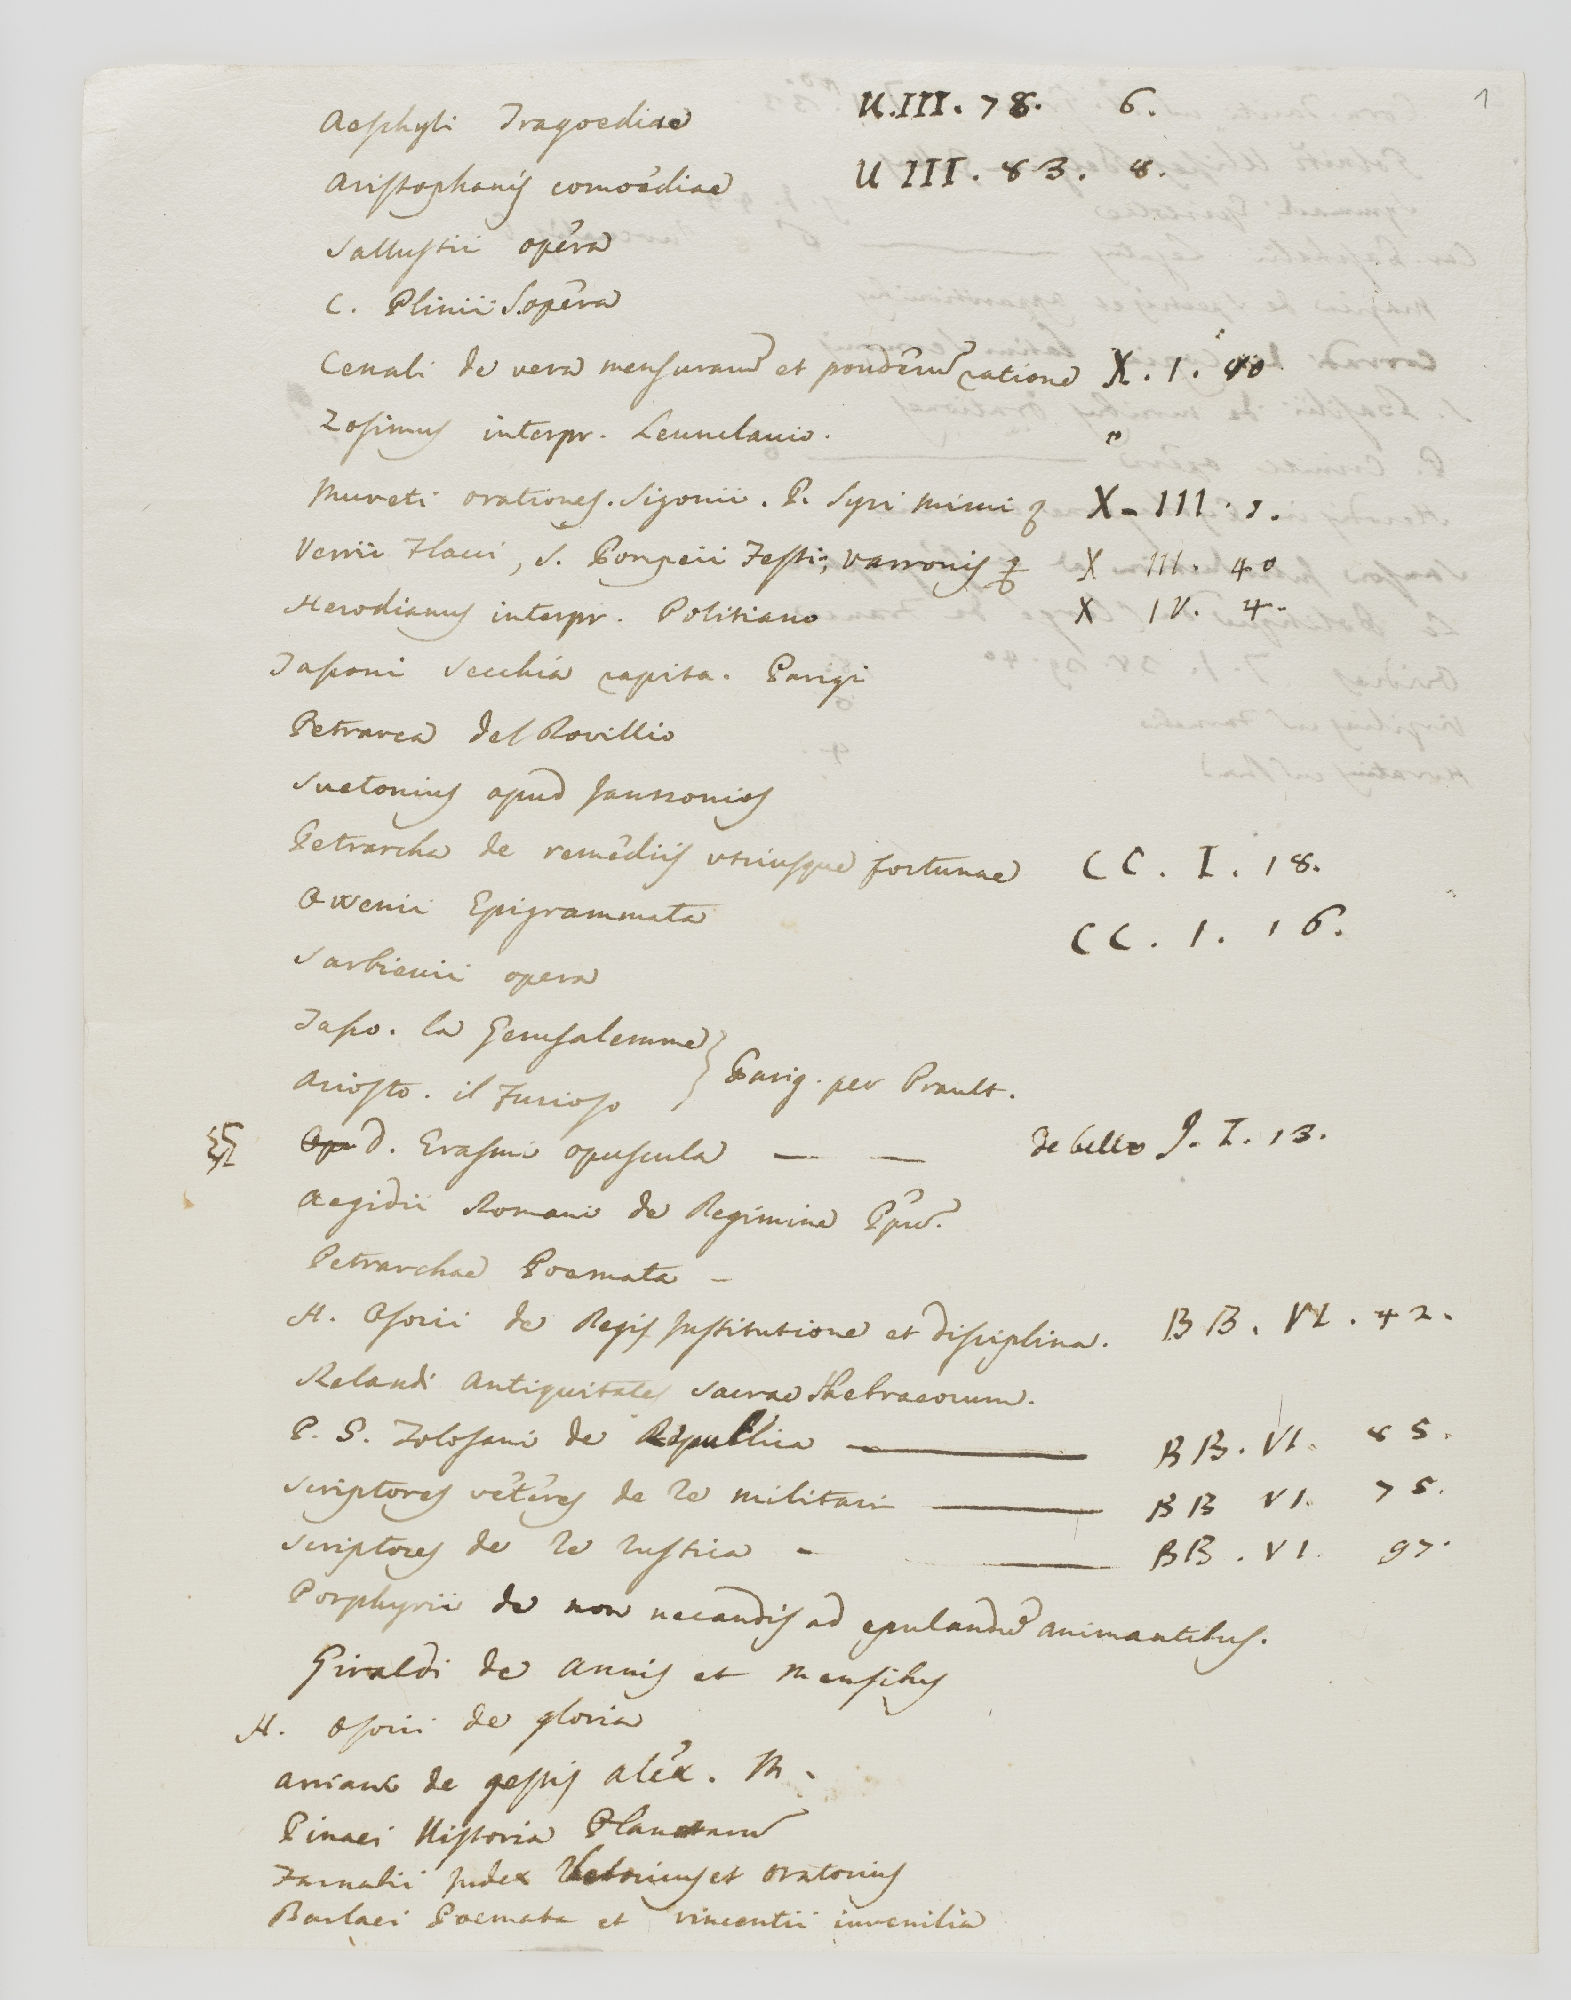 1
Aeschyli Tragoediae U.III. 78. 6.
Aristophanis comoediae U III. 83. 8.
Sallustii opera
C. Plinii S. opera
Cenali de vera mensurarum et ponderum ratione X. 1. 40
Zosimus interpr. Leunclauio. "
Mureti orationes. Sigonii. P. Syri Mimi & X - III. 5.
Verrii Flacci, S. Pompeii Festi, Varronis & X III. 40
Herodianus interpr. Politiano X IV. 4.
Tassoni Secchia rapita. Parigi
Petrarca del Rovillio
Suetonius apud Janssonios
Petrarcha de remediis utriusque fortunae CC. I. 18.
Owenii Epigrammata CC. 1. 16.
Sarbievii opera
Tasso. la Gerusalemme
Ariosto. il Furioso } Parig. per Prault.
D. Erasmi opuscula — — de bello J. I. 13.
Aegidii Romani de Regimine Ppum.
Petrarchae Poemata —
H. Osorii de Regis Institutione et disciplina. BB. VI. 42.
Relandi Antiquitates Sacrae Hebraeorum.
P. G. Tolosani de Republica — BB. VI. 85.
Scriptores veteres de re militari — BB VI. 75.
Scriptores de re rustica - — BB. VI. 97.
Porphyrii de non necandis ad epulandum animantibus.
Giraldi de Annis et Mensibus
H. Osorii de gloria
Arriani de gestis Alex. M.
Pinaei Historia Plantarum
Farnabii Index Rhetoricus et Oratorius
Barlaei Poemata et Vincentii iuvenilia